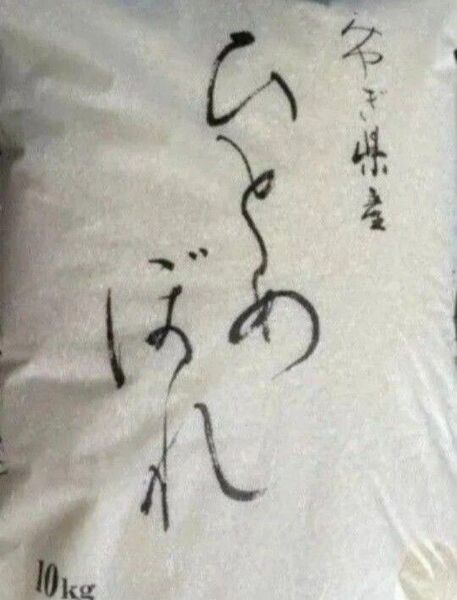 みやぎ県産
ひとめ
ぼれ
10kg